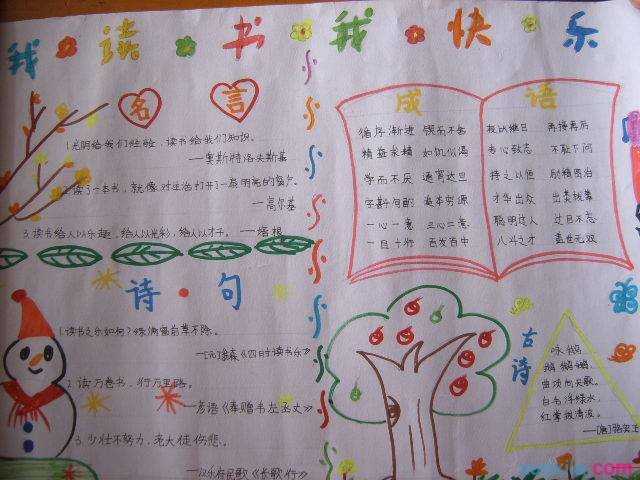 我读书我快乐
名言
1.光阴给我们经验，读书给我们知识。
——奥斯特洛夫斯基
2.读了一本书，就像对生活打开了一扇明亮的窗户。
——高尔基
3.读书给人以乐趣，给人以光彩，给人以才干。——培根
诗·句
1.读书之乐何如？绿满窗前草不除。
2.读万卷书，行万里路。
3.少壮不努力，老大徒伤悲。
——汉乐府民歌《长歌行》
成语
循序渐进 锲而不舍
精益求精 如饥似渴
学而不厌 通宵达旦
字斟句酌 追本穷源
一心一意 三心二意
一目十行 百发百中
夜以继日 再接再厉
专心致志 不耻下问
持之以恒 励精图治
才华出众 出类拔萃
聪明过人 过目不忘
八斗之才 盖世无双
古诗
咏鹅
鹅鹅鹅，
曲项向天歌。
白毛浮绿水，
红掌拨清波。
com